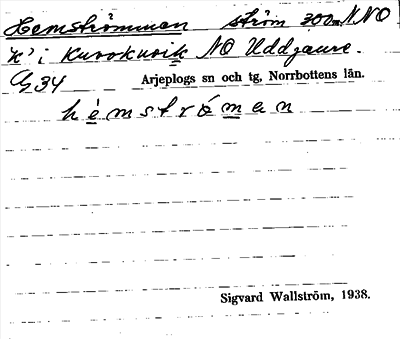 Hemströmmen ström 300 m NNO
K' i Kurokvik NO Uddjaure.
G 34 Arjeplogs sn och tg, Norrbottens län.
hémströ́mən
Sigvard Wallström, 1938.